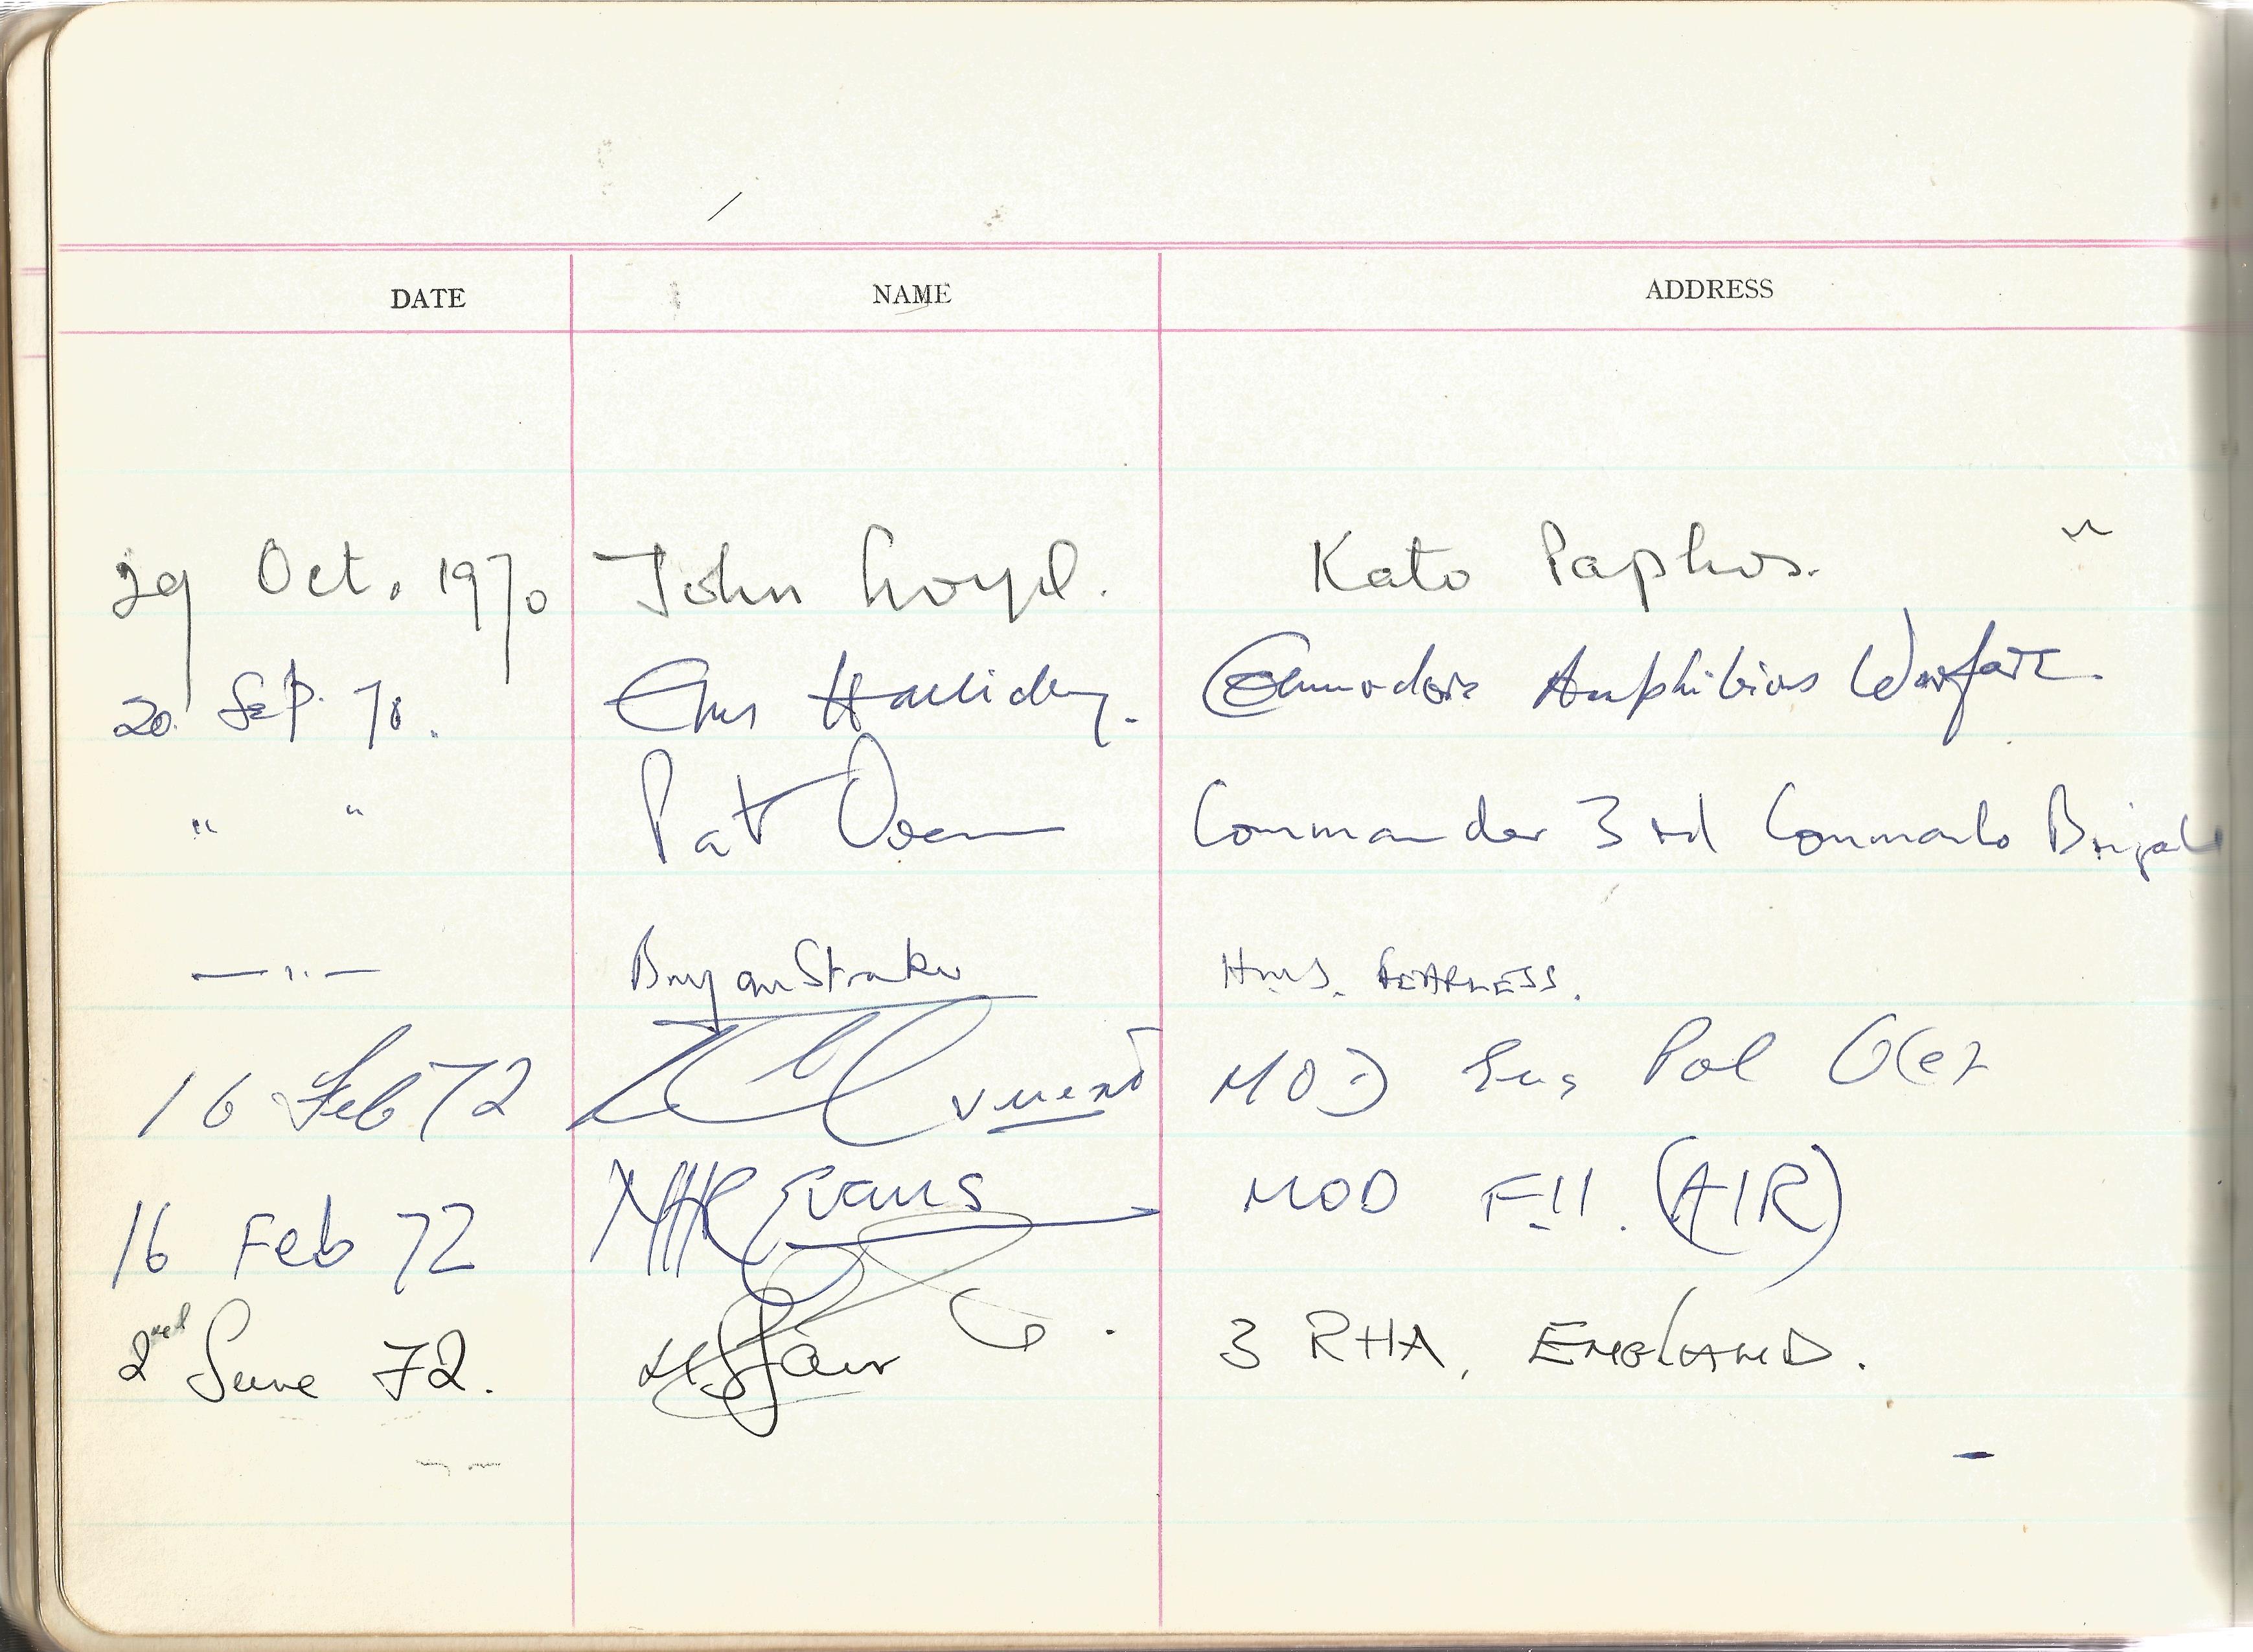 DATE NAME ADDRESS
29 Oct. 1970 John Loyd. Kato Paphos.
20. Sep. 71. Halliday. Commodore Amphibious Warfare.
" " Pat Commander 3rd Commando Brigade
— " — Bryan Straker H.M.S. FEARLESS.
16 Feb 72 MOD Pol
16 Feb 72 Evans MOD F.11. (AIR)
2nd June 72. 3 RHA, ENGLAND.